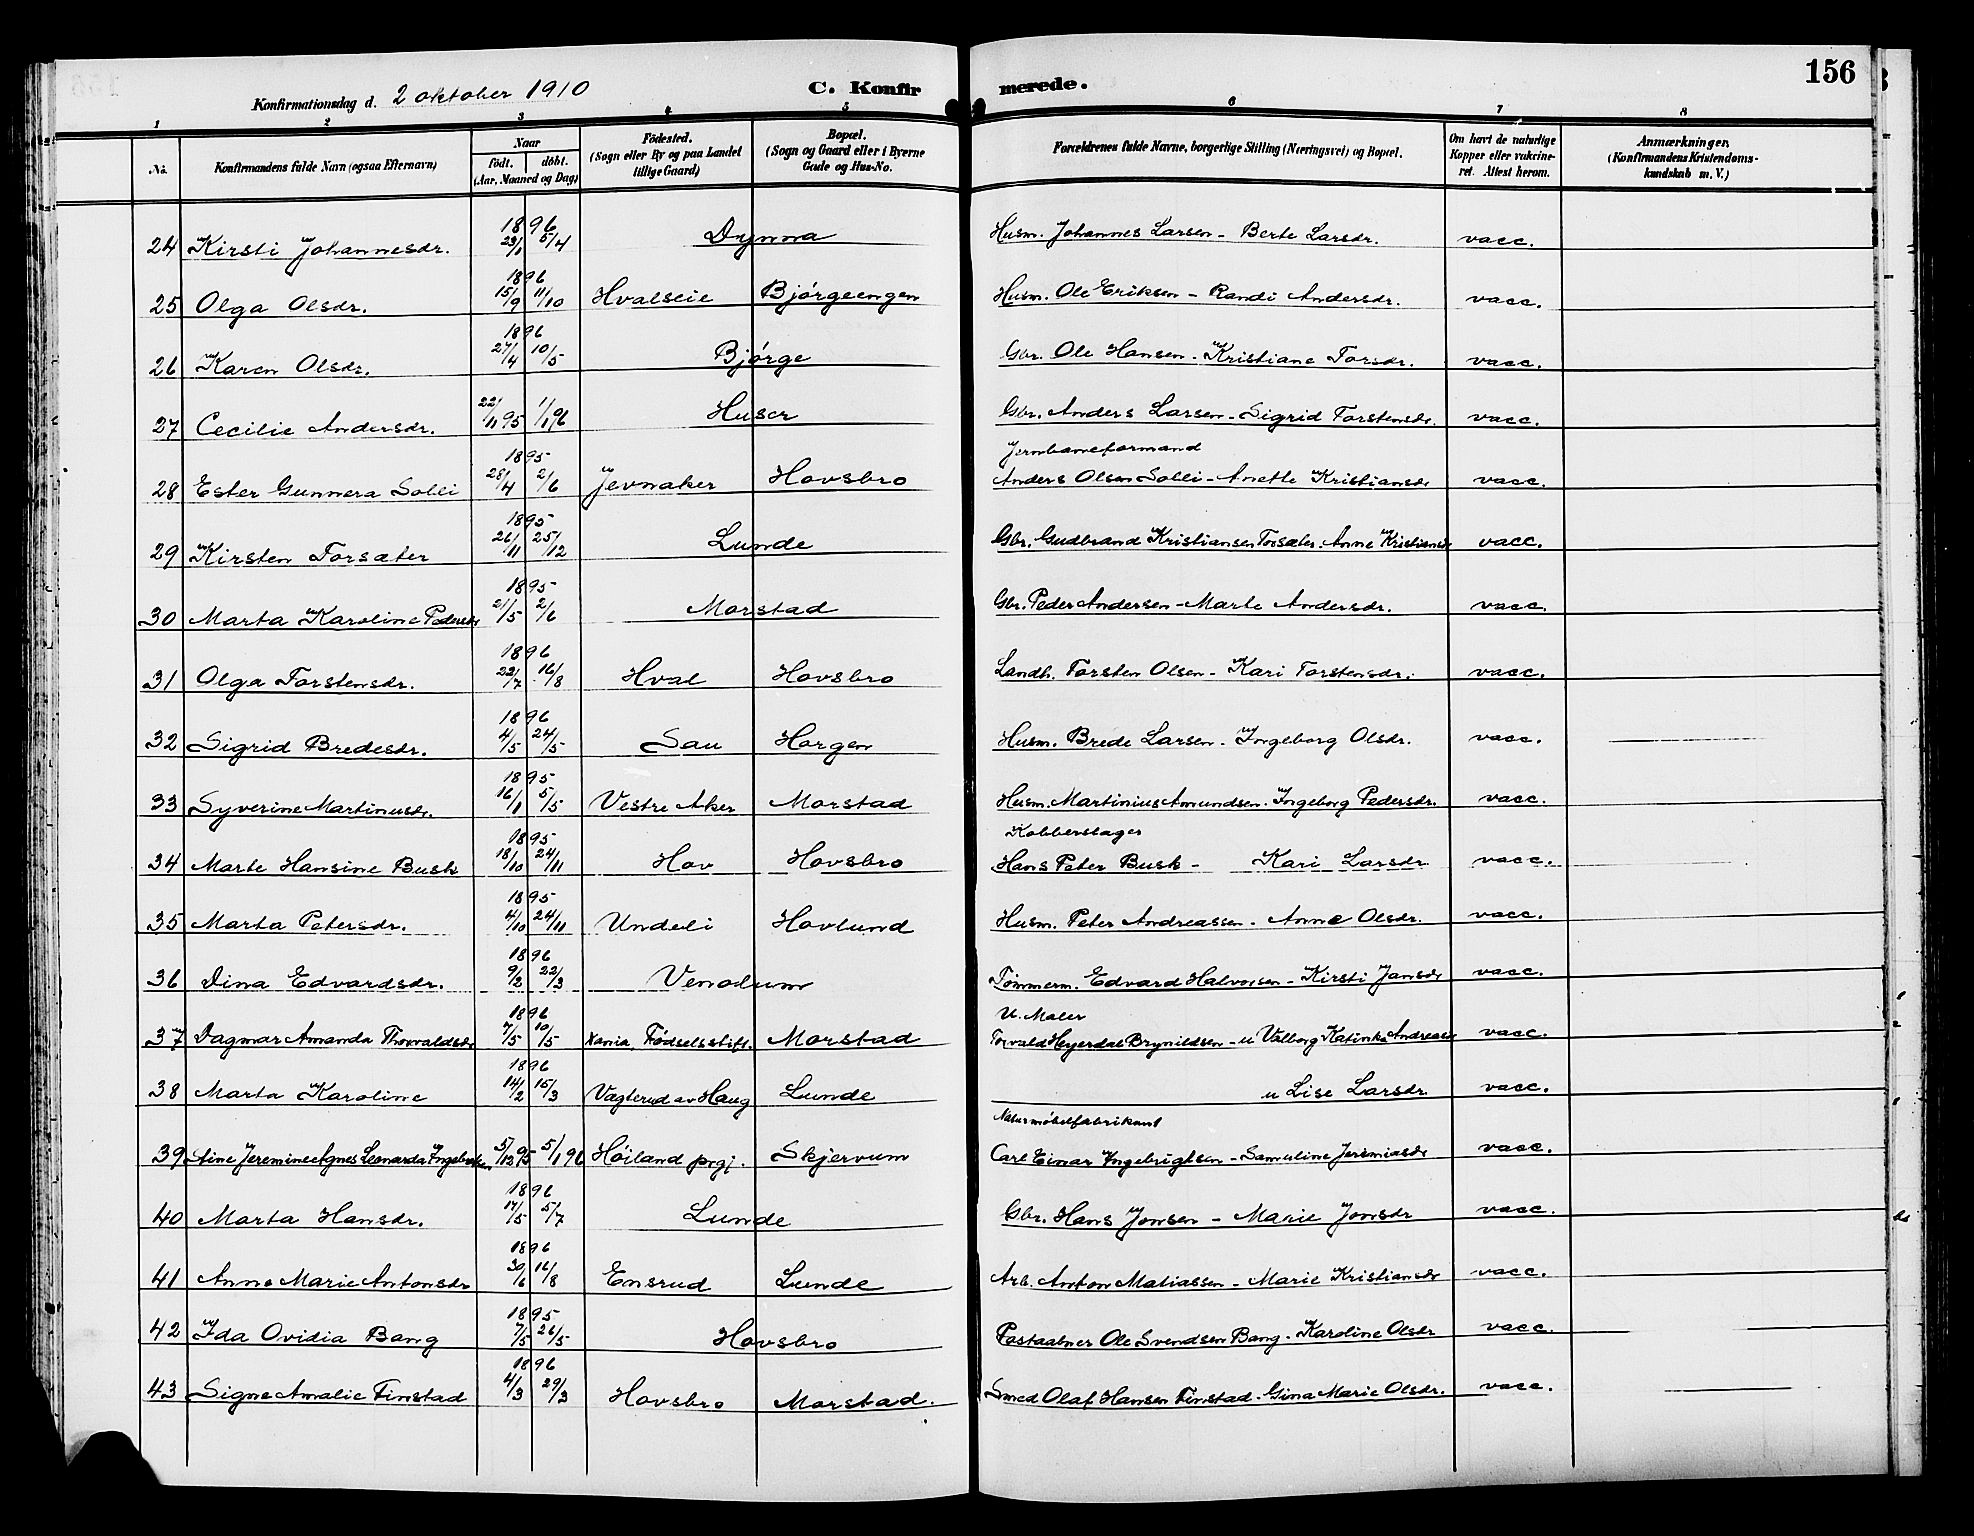 156
Konfirmationsdag d. 2 oktober 1910 C. Konfirmerede.
1 2 3 4 5 6 7 8
No. Konfirmandens fulde Navn (ogsaa Efternavn) Naar født. døbt. (Aar, Maaned og Dag) Fødested. (Sogn eller By og paa Landet tillige Gaard) Bopæl. (Sogn og Gaard eller i Byerne Gade og Hus-No. Forældrenes fulde Navne, borgerlige Stilling (Næringsvei) og Bopæl. Om havt de naturlige Kopper eller vakcineret. Attest herom. Anmærkninger. (Konfirmandens Kristendomskundskab m. V.)
24 Kirsti Johannesdr. 1896 23/1 5/4 Dynna Husm. Johannes Larsen - Berte Larsdr. vacc.
25 Olga Olsdr. 1896 15/9 11/10 Hvalseie Bjørgeengen Husm. Ole Eriksen - Randi Andersdr. vacc.
26 Karen Olsdr. 1896 27/4 10/5 Bjørge Gbr. Ole Hansen - Kristiane Torsdr. vacc.
27 Cecilie Andersdr. 22/11 95 1/1 96 Huser Gbr. Anders Larsen - Sigrid Torstensdr. vacc.
Jernbaneformand
28 Ester Gunnera Solli 1895 28/4 2/6 Jevnaker Hovsbro Anders Olsen Solli - Anette Kristiansdr vacc.
29 Kirsten Torsæter 1895 26/11 25/12 Lunde Gbr. Gudbrand Kristiansen Torsæter. Anne Kristiansdr vacc.
30 Marta Karoline Pedersdr 1895 21/5 2/6 Morstad Gbr. Peder Andersen - Marte Andersdr. vacc.
31 Olga Torstensdr. 1896 22/7 16/8 Hval Hovsbro Landh. Torsten Olsen - Kari Torstensdr. vacc.
32 Sigrid Bredesdr. 1896 4/5 24/5 Sau Horgen Husm. Brede Larsen - Ingeborg Olsdr. vacc.
33 Syverine Martinusdr. 1895 16/1 5/5 Vestre Aker Morstad Husm. Martinius Amundsen. Ingeborg Pedersdr. vacc.
Kobberslager
34 Marte Hansine Busk 1895 18/10 24/11 Hov Hovsbro Hans Peter Busk - Kari Larsdr vacc.
35 Marta Petersdr. 1895 4/10 24/11 Undeli Hovlund Husm. Peter Andreassen - Anne Olsdr. vacc.
36 Dina Edvardsdr. 1896 9/2 22/3 Venolum Tømmerm. Edvard Halvorsen - Kirsti Jansdr vacc.
U. Maler
37 Dagmar Amanda Thorvaldsdr 1896 7/5 10/5 Xania, Fødselsstift. Morstad Torvald Heyerdal Brynildsen - u Valborg Katinka Andreasdr vacc.
38 Marta Karoline 1896 14/2 15/3 Vagterud av Haug Lunde u Lise Larsdr vacc.
Naturmøbelfabrikant
39 Aine Jeremine Agnes Leonarda Ingebrigtsen 5/12 95 5/1 96 Høiland prgj. Skjervum Carl Einar Ingebrigtsen - Samuline Jeremiasdr vacc.
40 Marta Hansdr. 1896 17/5 5/7 Lunde Gbr. Hans Jonsen - Marie Jonsdr vacc.
41 Anna Marie Antonsdr 1896 30/6 16/8 Ensrud Lunde Arb. Anton Matiassen - Marie Kristiansdr vacc.
42 Ida Ovidia Bang 1895 7/5 26/5 Hovsbro Postaabner Ole Svendsen Bang - Karoline Olsdr vacc.
43 Signe Amalie Finstad 1896 4/3 29/3 Hovsbro Morstad. Smed Olaf Hansen Finstad - Gina Marie Olsdr. vacc.